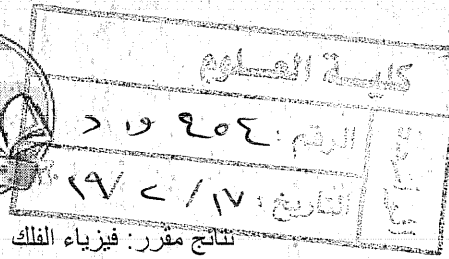 كلية العلوم
الرقم: ٩٥٤ و د
التاريخ: ١٧ / ٢ / ٢٩
نتائج مقرر: فيزياء الفلك